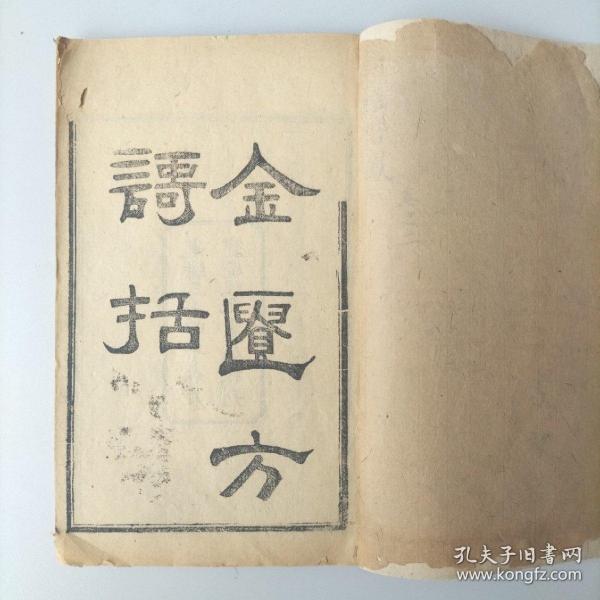 金匱方
謌括
孔夫子旧書网
www.kongfz.com